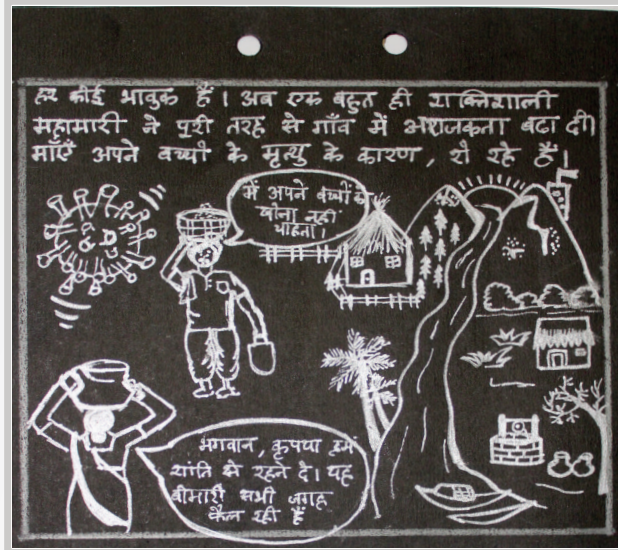 हर कोई भावुक हैं। अब एक बहुत ही शक्तिशाली
महामारी ने पूरी तरह से गाँव में अराजकता बढा दी।
माँएँ अपने बच्चों के मृत्यु के कारण, रो रहे हैं।
में अपने बच्चों को
खोना नहीं
चाहता।
भगवान, कृपया हमें
शांति से रहने दे। यह
बीमारी सभी जगह
फैल रही हैं